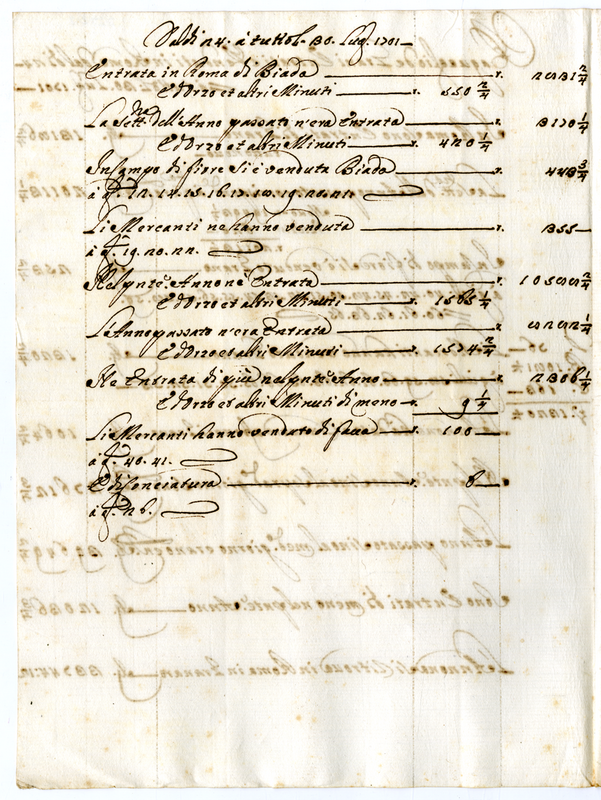 Dalli 24. à tutto li 30. Lug.o 1701
Entrata in Roma di Biada r. 2831 2/4
Ed Orzo et altri Minuti r. 550 2/4
La Sett.na dell'Anno passato n'era Entrata r. 3170 1/4
Ed Orzo et altri Minuti r. 420 1/4
In Campo di fiore si è venduta Biada r. 443 3/4
à q.li 12. 14. 15. 16. 17. 18. 19. 20. 21.
Li Mercanti ne hanno venduta r. 355
à q.li 19. 20. 22.
Nel pnte Anno ne è Entrata r. 10588 2/4
Ed Orzo et altri Minuti r. 1565 1/4
L'Anno passato n'era Entrata r. 8282 1/4
Ed Orzo et altri Minuti r. 1574 2/4
Ne Entrata di più nel pnte Anno r. 2306 1/4
Ed Orzo et altri Minuti di meno r. 9 1/4
Li Mercanti hanno venduto di fava r. 100
à q.li 40. 41.
E di r. 6
à q.li 26.